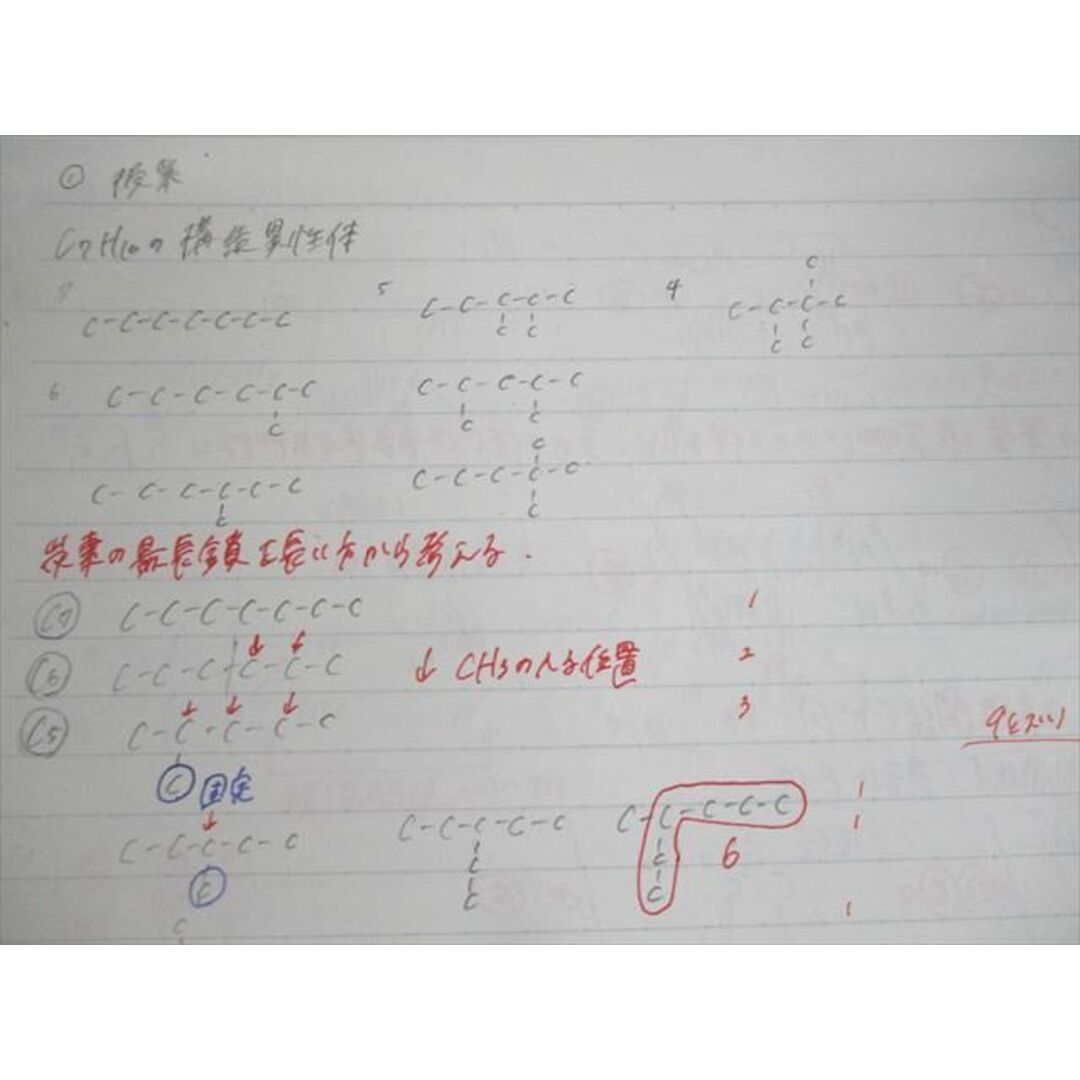 ① 授業
C7H16の構造異性体
7 C-C-C-C-C-C-C
5 C-C-C-C-C
C C
4 C
C-C-C-C
C C
6 C-C-C-C-C-C
C
C-C-C-C-C
C C
C-C-C-C-C-C
C
C
C-C-C-C-C
C
炭素の最長鎖を長い方から考える.
C7 C-C-C-C-C-C-C 1
C6 C-C-C-C-C-C ↓ CH3の入る位置 2
C5 C-C-C-C-C 3
C 固定
9ヒズい)
C-C-C-C-C
C
C-C-C-C-C
C
C
C-C-C-C-C
C
C
6
1
1
1
C